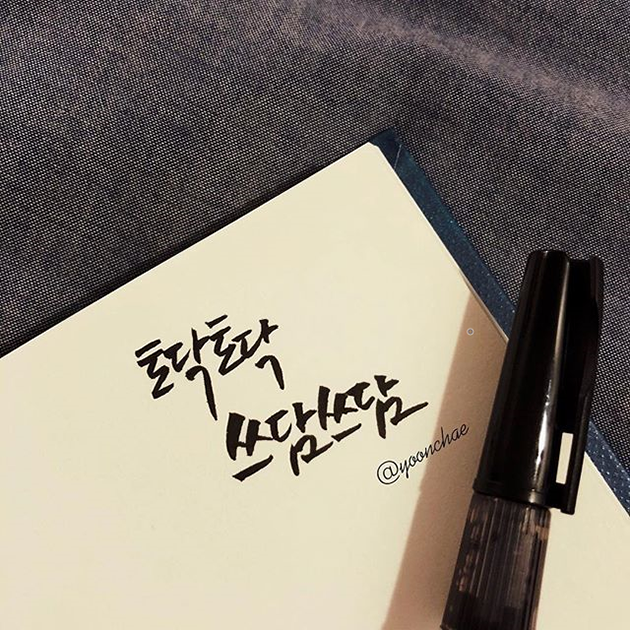 토닥토닥
쓰담쓰담
@yoonchae